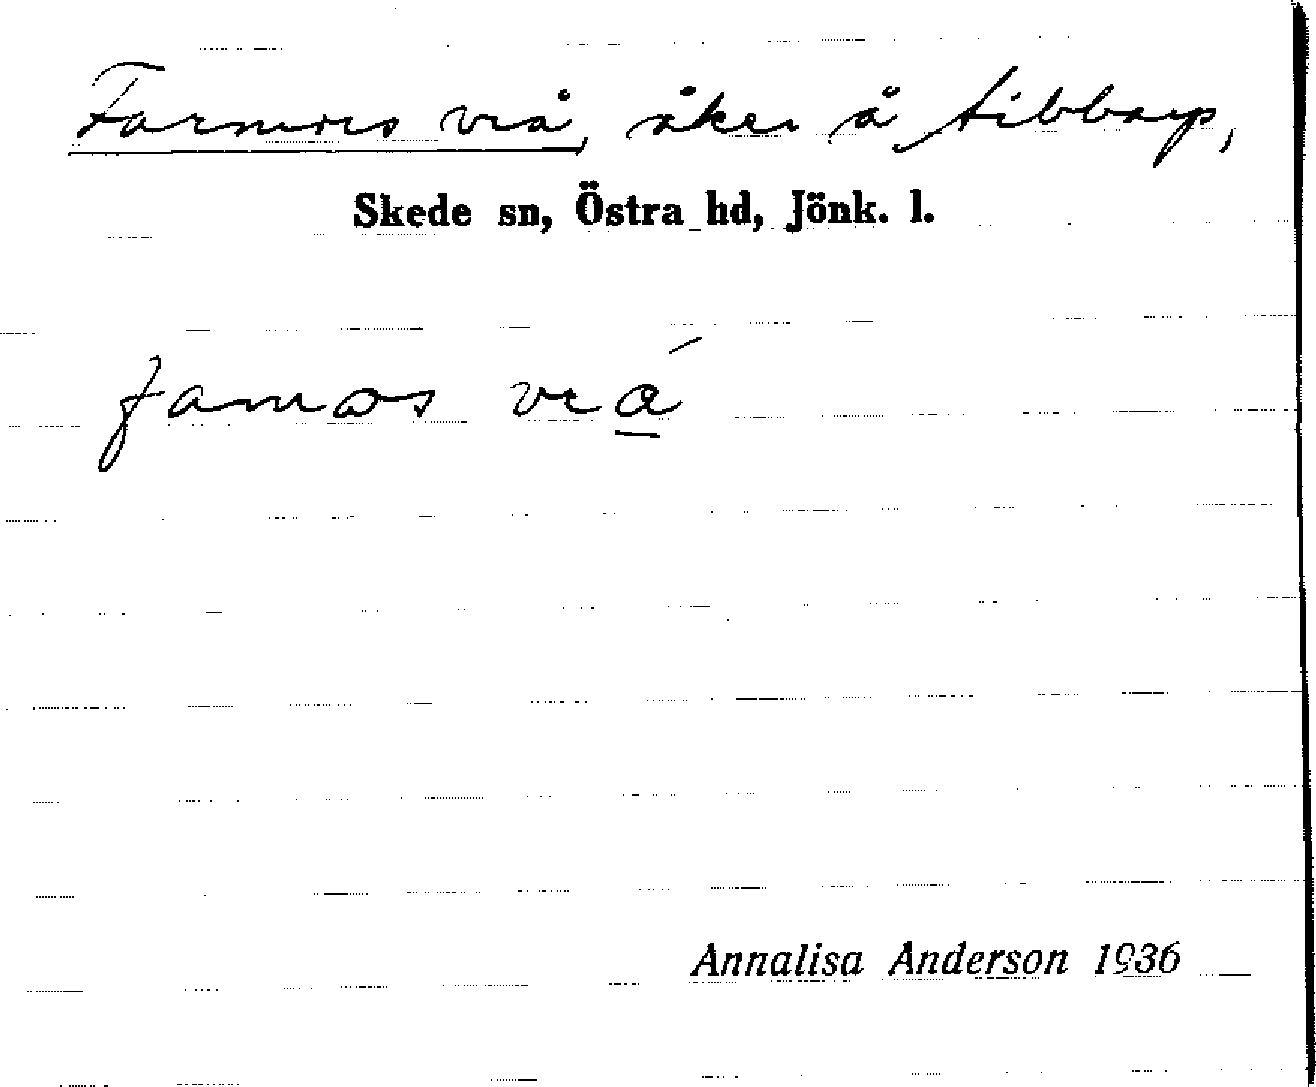 Farmors vrå, åker å Sibbarp,
Skede sn, Östra hd, Jönk. l.
famos vrá
Annalisa Anderson 1936